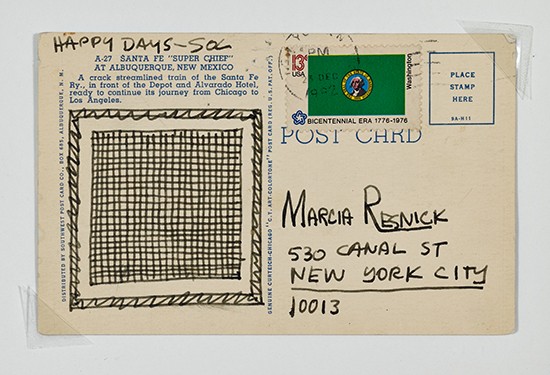 HAPPY DAYS—SOL
A-27 SANTA FE "SUPER CHIEF"
AT ALBUQUERQUE, NEW MEXICO
A crack streamlined train of the Santa Fe
Ry., in front of the Depot and Alvarado Hotel,
ready to continue its journey from Chicago to
Los Angeles.
DISTRIBUTED BY SOUTHWEST POST CARD CO., BOX 685, ALBUQUERQUE, N. M.
GENUINE CURTEICH-CHICAGO "C.T. ART-COLORTONE" POST CARD (REG. U.S. PAT. OFF.)
PM
DEC
13c
USA
Washington
BICENTENNIAL ERA 1776-1976
PLACE
STAMP
HERE
POST CARD
MARCIA RESNICK
530 CANAL ST
NEW YORK CITY
10013